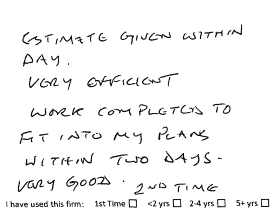 ESTIMATE GIVEN WITHIN
DAY.
VERY EFFICIENT
WORK COMPLETED TO
FIT INTO MY PLANS
WITHIN TWO DAYS.
VERY GOOD. 2ND TIME
I have used this firm: 1st Time <2 yrs 2-4 yrs 5+ yrs